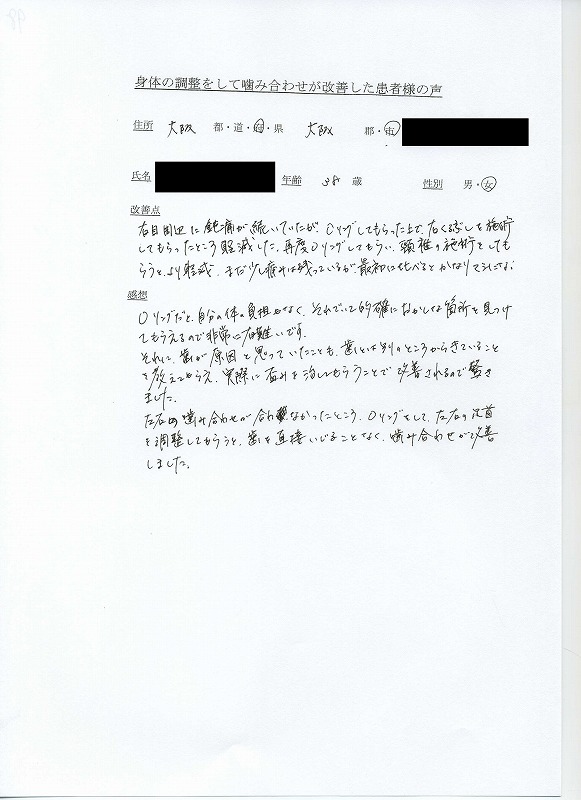 身体の調整をして噛み合わせが改善した患者様の声
住所 大阪 都・道・府・県 大阪 郡・市
氏名 年齢 38 歳 性別 男・女
改善点
右目周辺に鈍痛が続いていたが、Oリングしてもらった上で、右くるぶしを施術
してもらったところ軽減した。再度Oリングしてもらい、頸椎の施術をしても
らうと、より軽減。まだ少し痛みは残っているが、最初に比べるとかなりマシになった
感想
Oリングだと、自分の体の負担もなく、それでいて的確におかしな箇所を見つけ
てもらえるので非常に有難いです。
それに、歯が原因と思っていたことも、歯とは別のところからきていること
を教えてもらえ、実際に歪みを治してもらうことで改善されるので驚き
ました。
左右の噛み合わせが合わなかったところ、Oリングをして、左右の足首
を調整してもらうと、歯を直接いじることなく、噛み合わせが改善
しました。